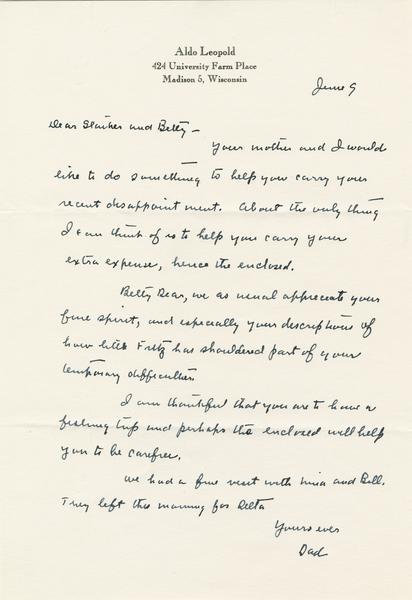 Aldo Leopold
424 University Farm Place
Madison 5, Wisconsin
June 9
Dear Starker and Betty –
Your mother and I would
like to do something to help you carry your
recent disappointment. About the only thing
I can think of is to help you carry your
extra expense, hence the enclosed.
Betty Dear, we as usual appreciate your
fine spirit, and especially your descriptions of
how little Fritz has shouldered part of your
temporary difficulties
I am thankful that you are to have a
fishing trip and perhaps the enclosed will help
you to be carefree.
We had a fine visit with Nina and Bill.
They left this morning for Delta
Yours ever
Dad